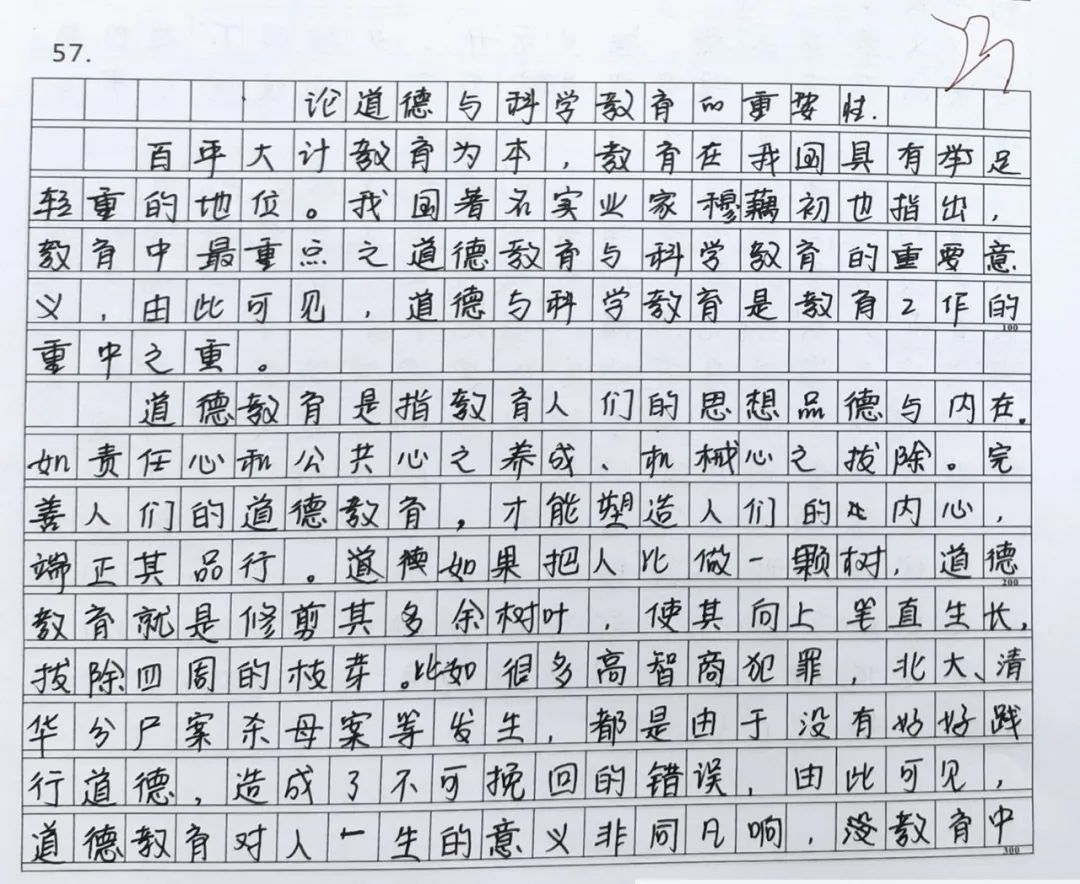 57.
论道德与科学教育的重要性.
百年大计教育为本，教育在我国具有举足
轻重的地位。我国著名实业家穆藕初也指出，
教育中最重点之道德教育与科学教育的重要意
义，由此可见，道德与科学教育是教育工作的
100
重中之重。
道德教育是指教育人们的思想品德与内在.
如责任心和公共心之养成、机械心之拔除。完
善人们的道德教育，才能塑造人们的内心，
端正其品行。道德如果把人比做一颗树，道德
200
教育就是修剪其多余树叶，使其向上笔直生长，
拔除四周的枝芽。比如很多高智商犯罪，北大、清
华分尸案杀母案等发生，都是由于没有好好践
行道德，造成了不可挽回的错误，由此可见，
道德教育对人一生的意义非同凡响，没教育中
300